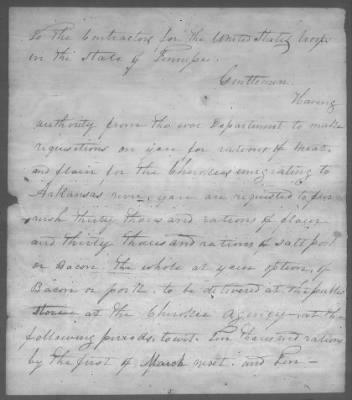 To the Contractors for the United States troops
in the State of Tennessee.
Gentlemen
Having
authority from the war Department to make
requisitions on you for rations of meat
and flour for the Cherokees emigrating to
Arkansas river, you are requested to fur-
nish thirty thousand rations of flour
and thirty thousand rations of salt pork
or Bacon the whole at your option, of
Bacon or pork to be delivered at the public
Stores at the Cherokee Agency at the
following periods, to wit. Ten thousand rations
by the first of March next. and Ten-